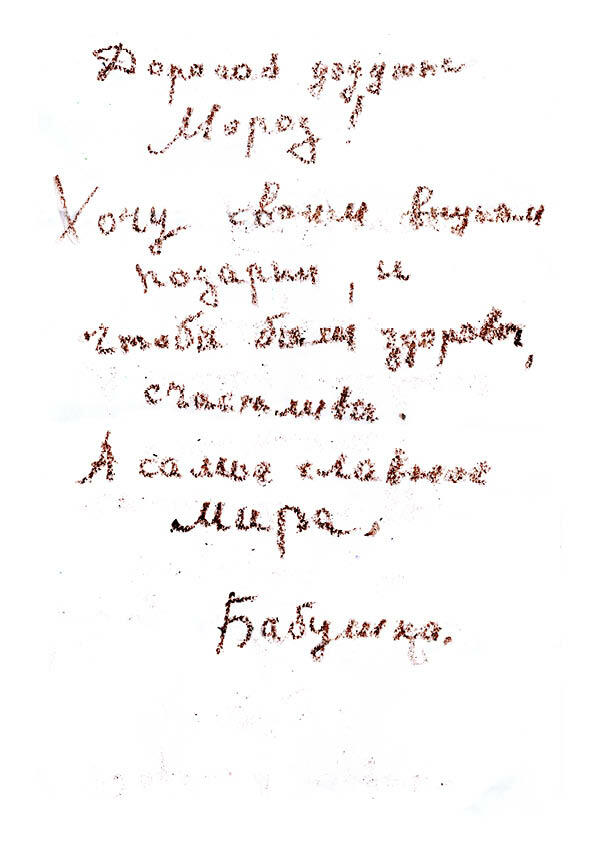 Дорогой дедушка
Мороз!
Хочу своим внукам
подарки, и
чтобы были здоровы,
счастливы.
А самое главное
мира.
Бабушка.